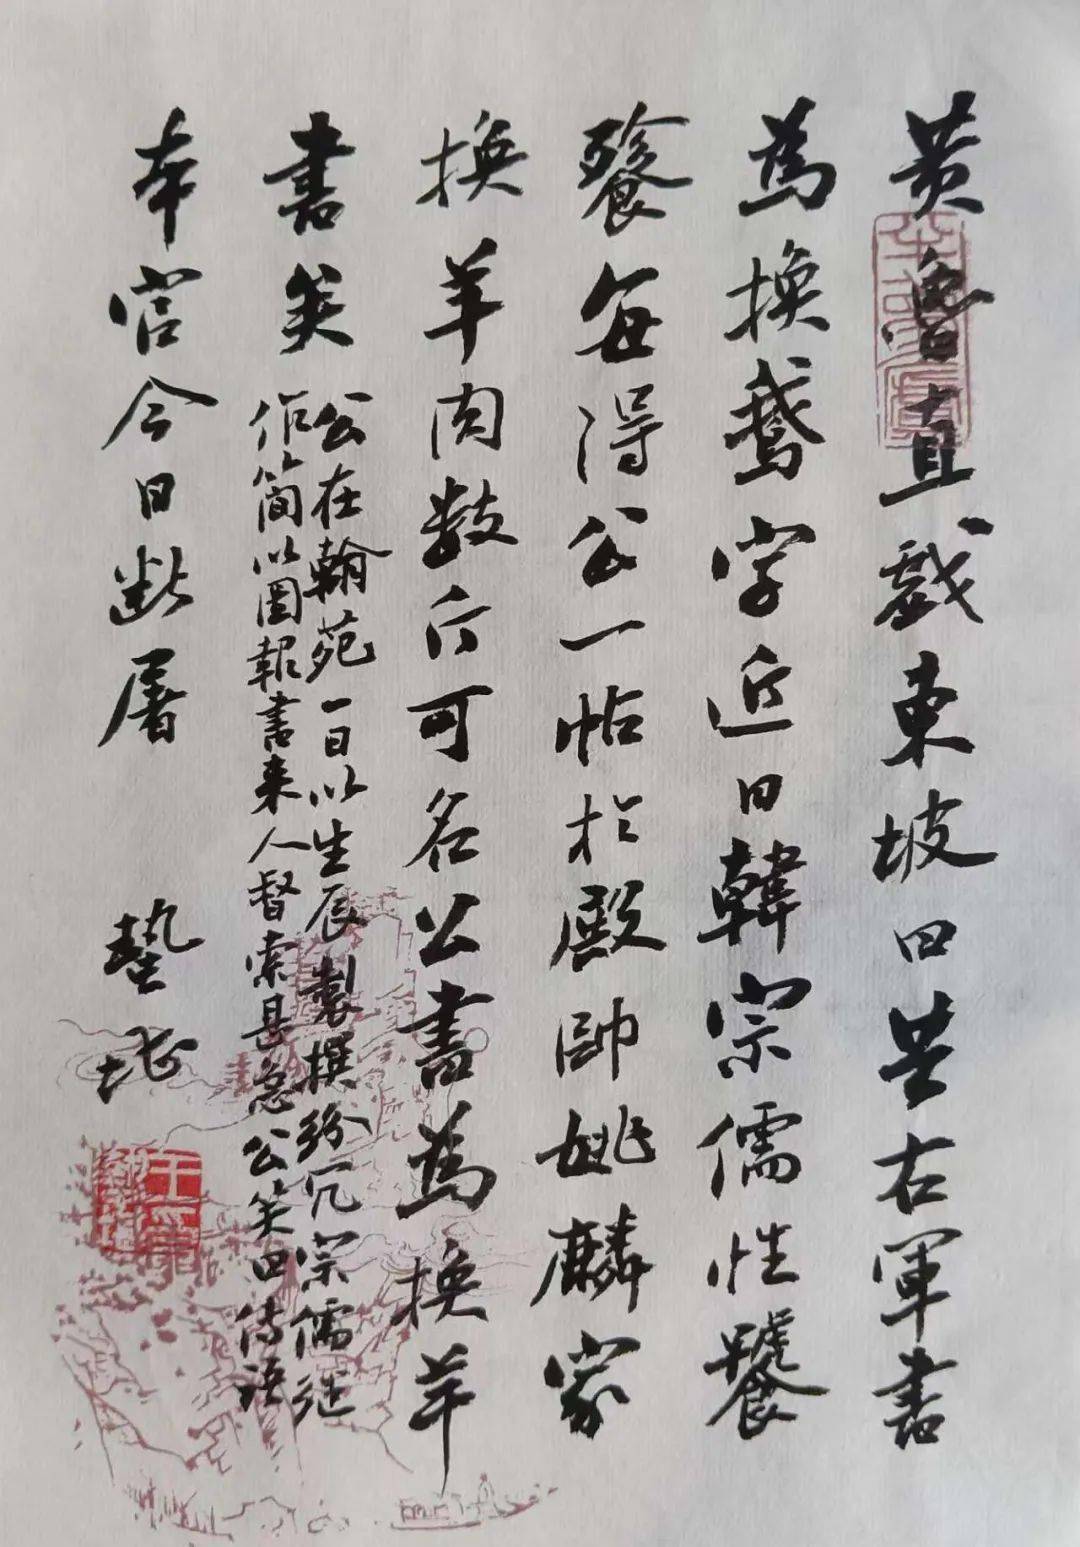 黄魯直戲東坡曰昔右軍書
為換鵞字近日韓宗儒性饕
餮每得公一帖於殿帥姚麟家
換羊肉数斤可名公書為換羊
書矣
公在翰苑一日以生辰製撰紛冗宗儒继
作简以圖報書来人督索甚急公笑曰傳語
本官今日断屠